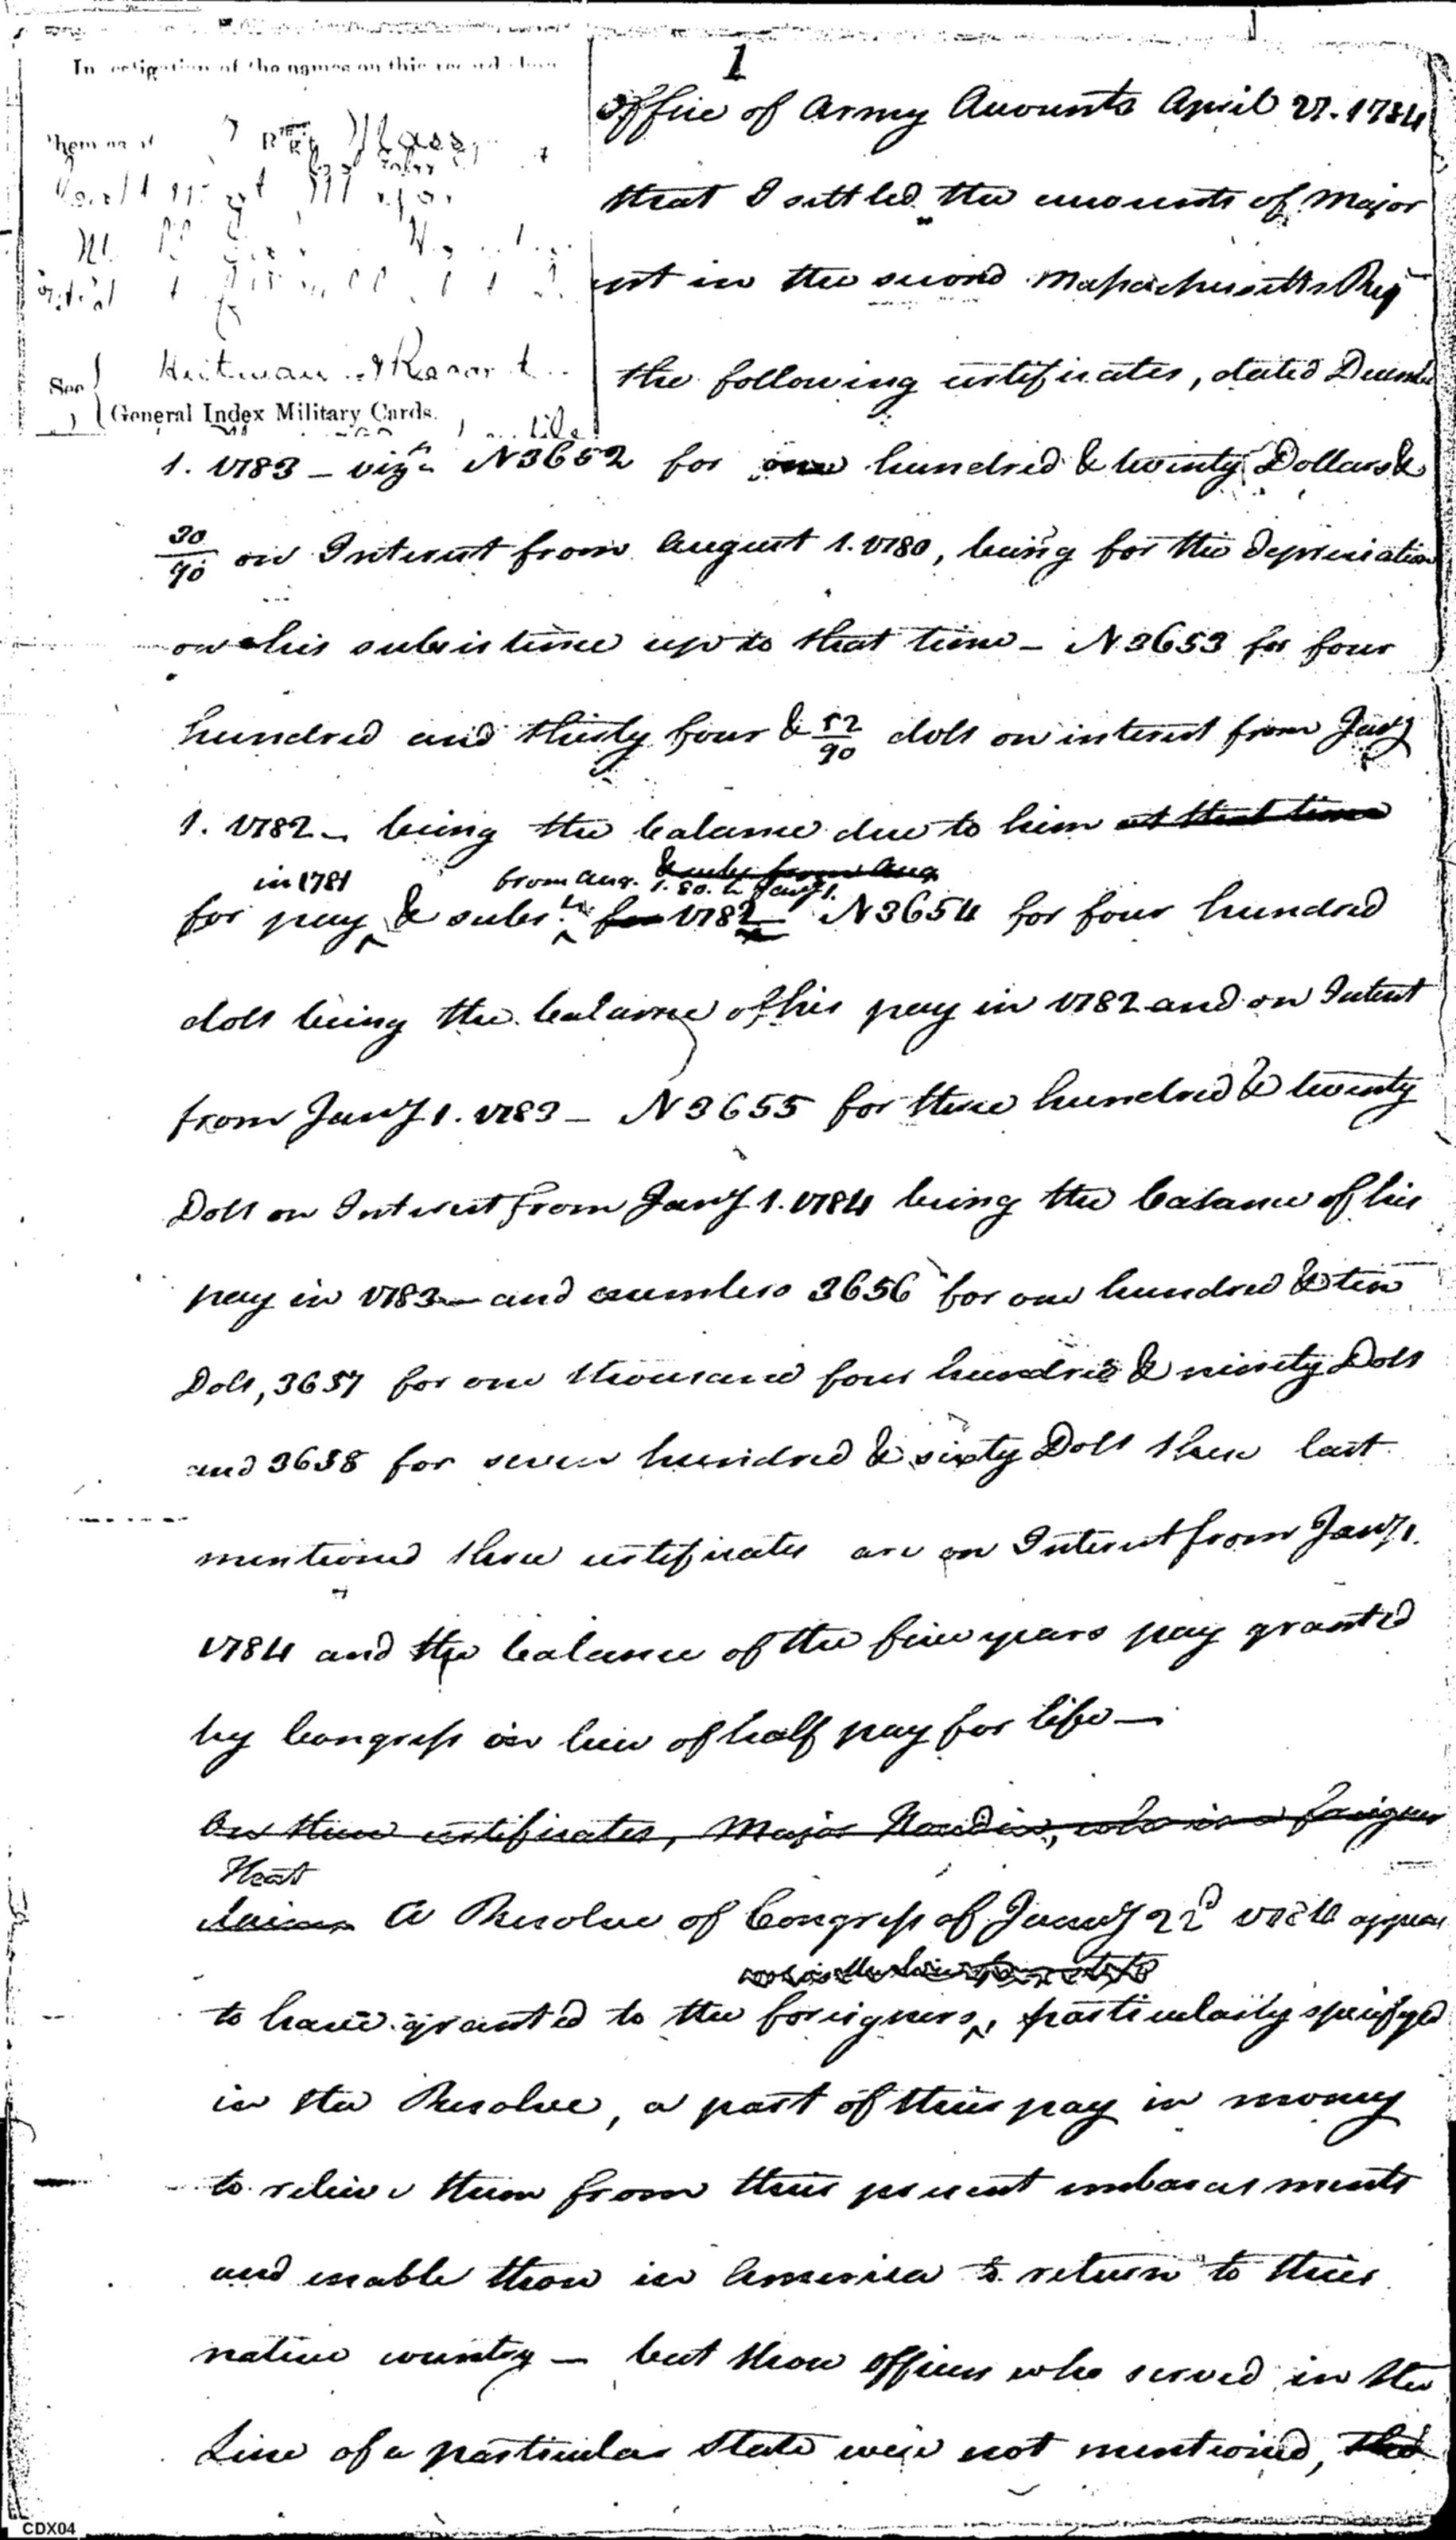 1
Office of Army Accounts April 27. 1784
that I settled the accounts of Major
in the second Massachusetts Reg
the following certificates, dated December
See
General Index Military Cards.
1. 1783 – viz N 3652 for one hundred & twenty Dollars &
30/90 on Interest from August 1. 1780, being for the depreciation
on his subsistence up to that time – N 3653 for four
hundred and thirty four & 52/90 dolls on interest from Jany
1. 1782 – being the balance due to him at that time
& subs from Aug
in 1781 from Aug. 1. 80. to Jany 1.
for pay & subs. for 1782 N 3654 for four hundred
dolls being the balance of his pay in 1782 and on Interest
from Jany 1. 1783 – N 3655 for three hundred & twenty
Dolls on Interest from Jany 1. 1784 being the balance of his
pay in 1783 – and numbers 3656 for one hundred & ten
Dolls, 3657 for one thousand four hundred & ninety Dolls
and 3658 for seven hundred & sixty Dolls these last
mentioned three certificates are on Interest from Jany 1.
1784 and the balance of the five years pay granted
by Congress in lieu of half pay for life –
On these certificates, Major who is a foreigner
That
claims A Resolve of Congress of Jany 22d 1784 appears
to have granted to the foreigners, particularly specifyed
in the Resolve, a part of their pay in money
to relieve them from their present embarasments
and enable those in America to return to their
native country – but those officers who served in the
Line of a particular State were not mentioned, that
CDX04